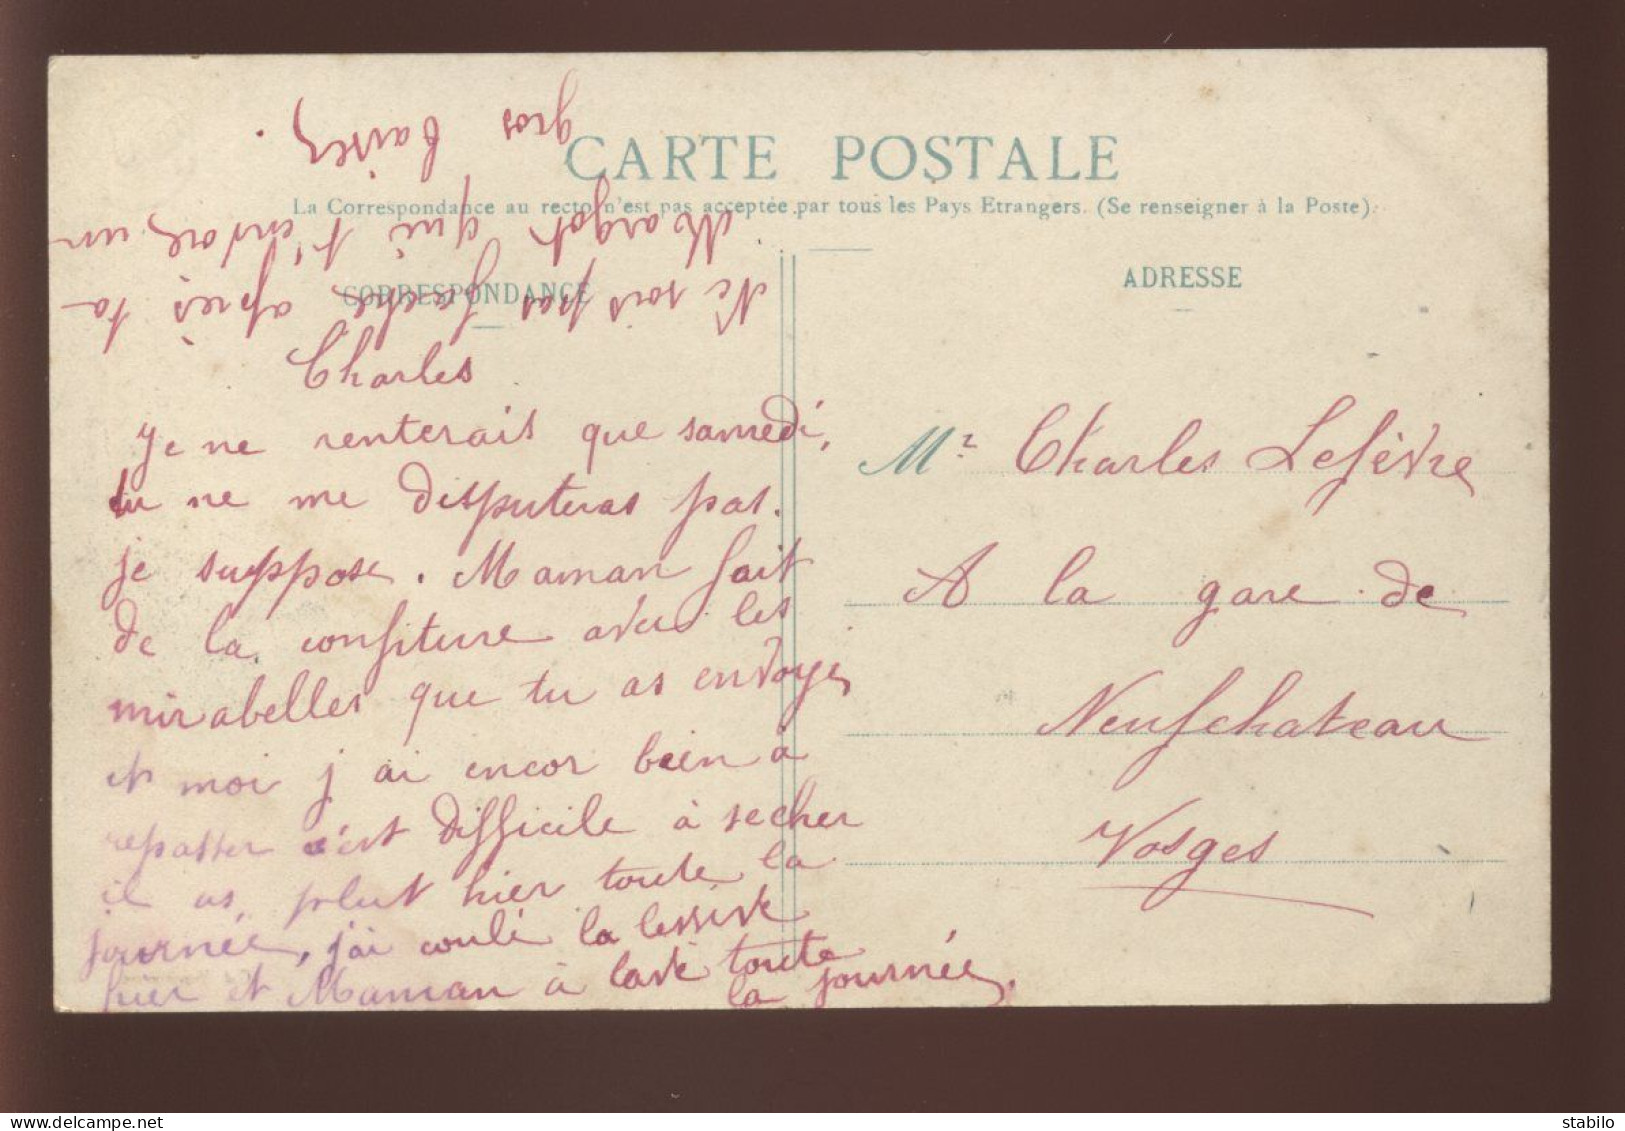 CARTE POSTALE
La Correspondance au recto n'est pas acceptée par tous les Pays Etrangers. (Se renseigner à la Poste).
CORRESPONDANCE
ADRESSE
Charles
Je ne renterais que samedi,
tu ne me disputeras pas.
je suppose. Maman fait
de la confiture avec les
mirabelles que tu as envoyé,
et moi j ai encor bien à
repasser c'est difficile à secher
il as, plut hier toute la
journée, j'ai coulé la lessive
hier et Maman à lavé toute
la journée.
Ne sois pas fache après ta
Margot qui t'envoie un
gros baiser.
Mr. Charles Lefèvre
A la gare de
Neufchateau
Vosges
stabilo